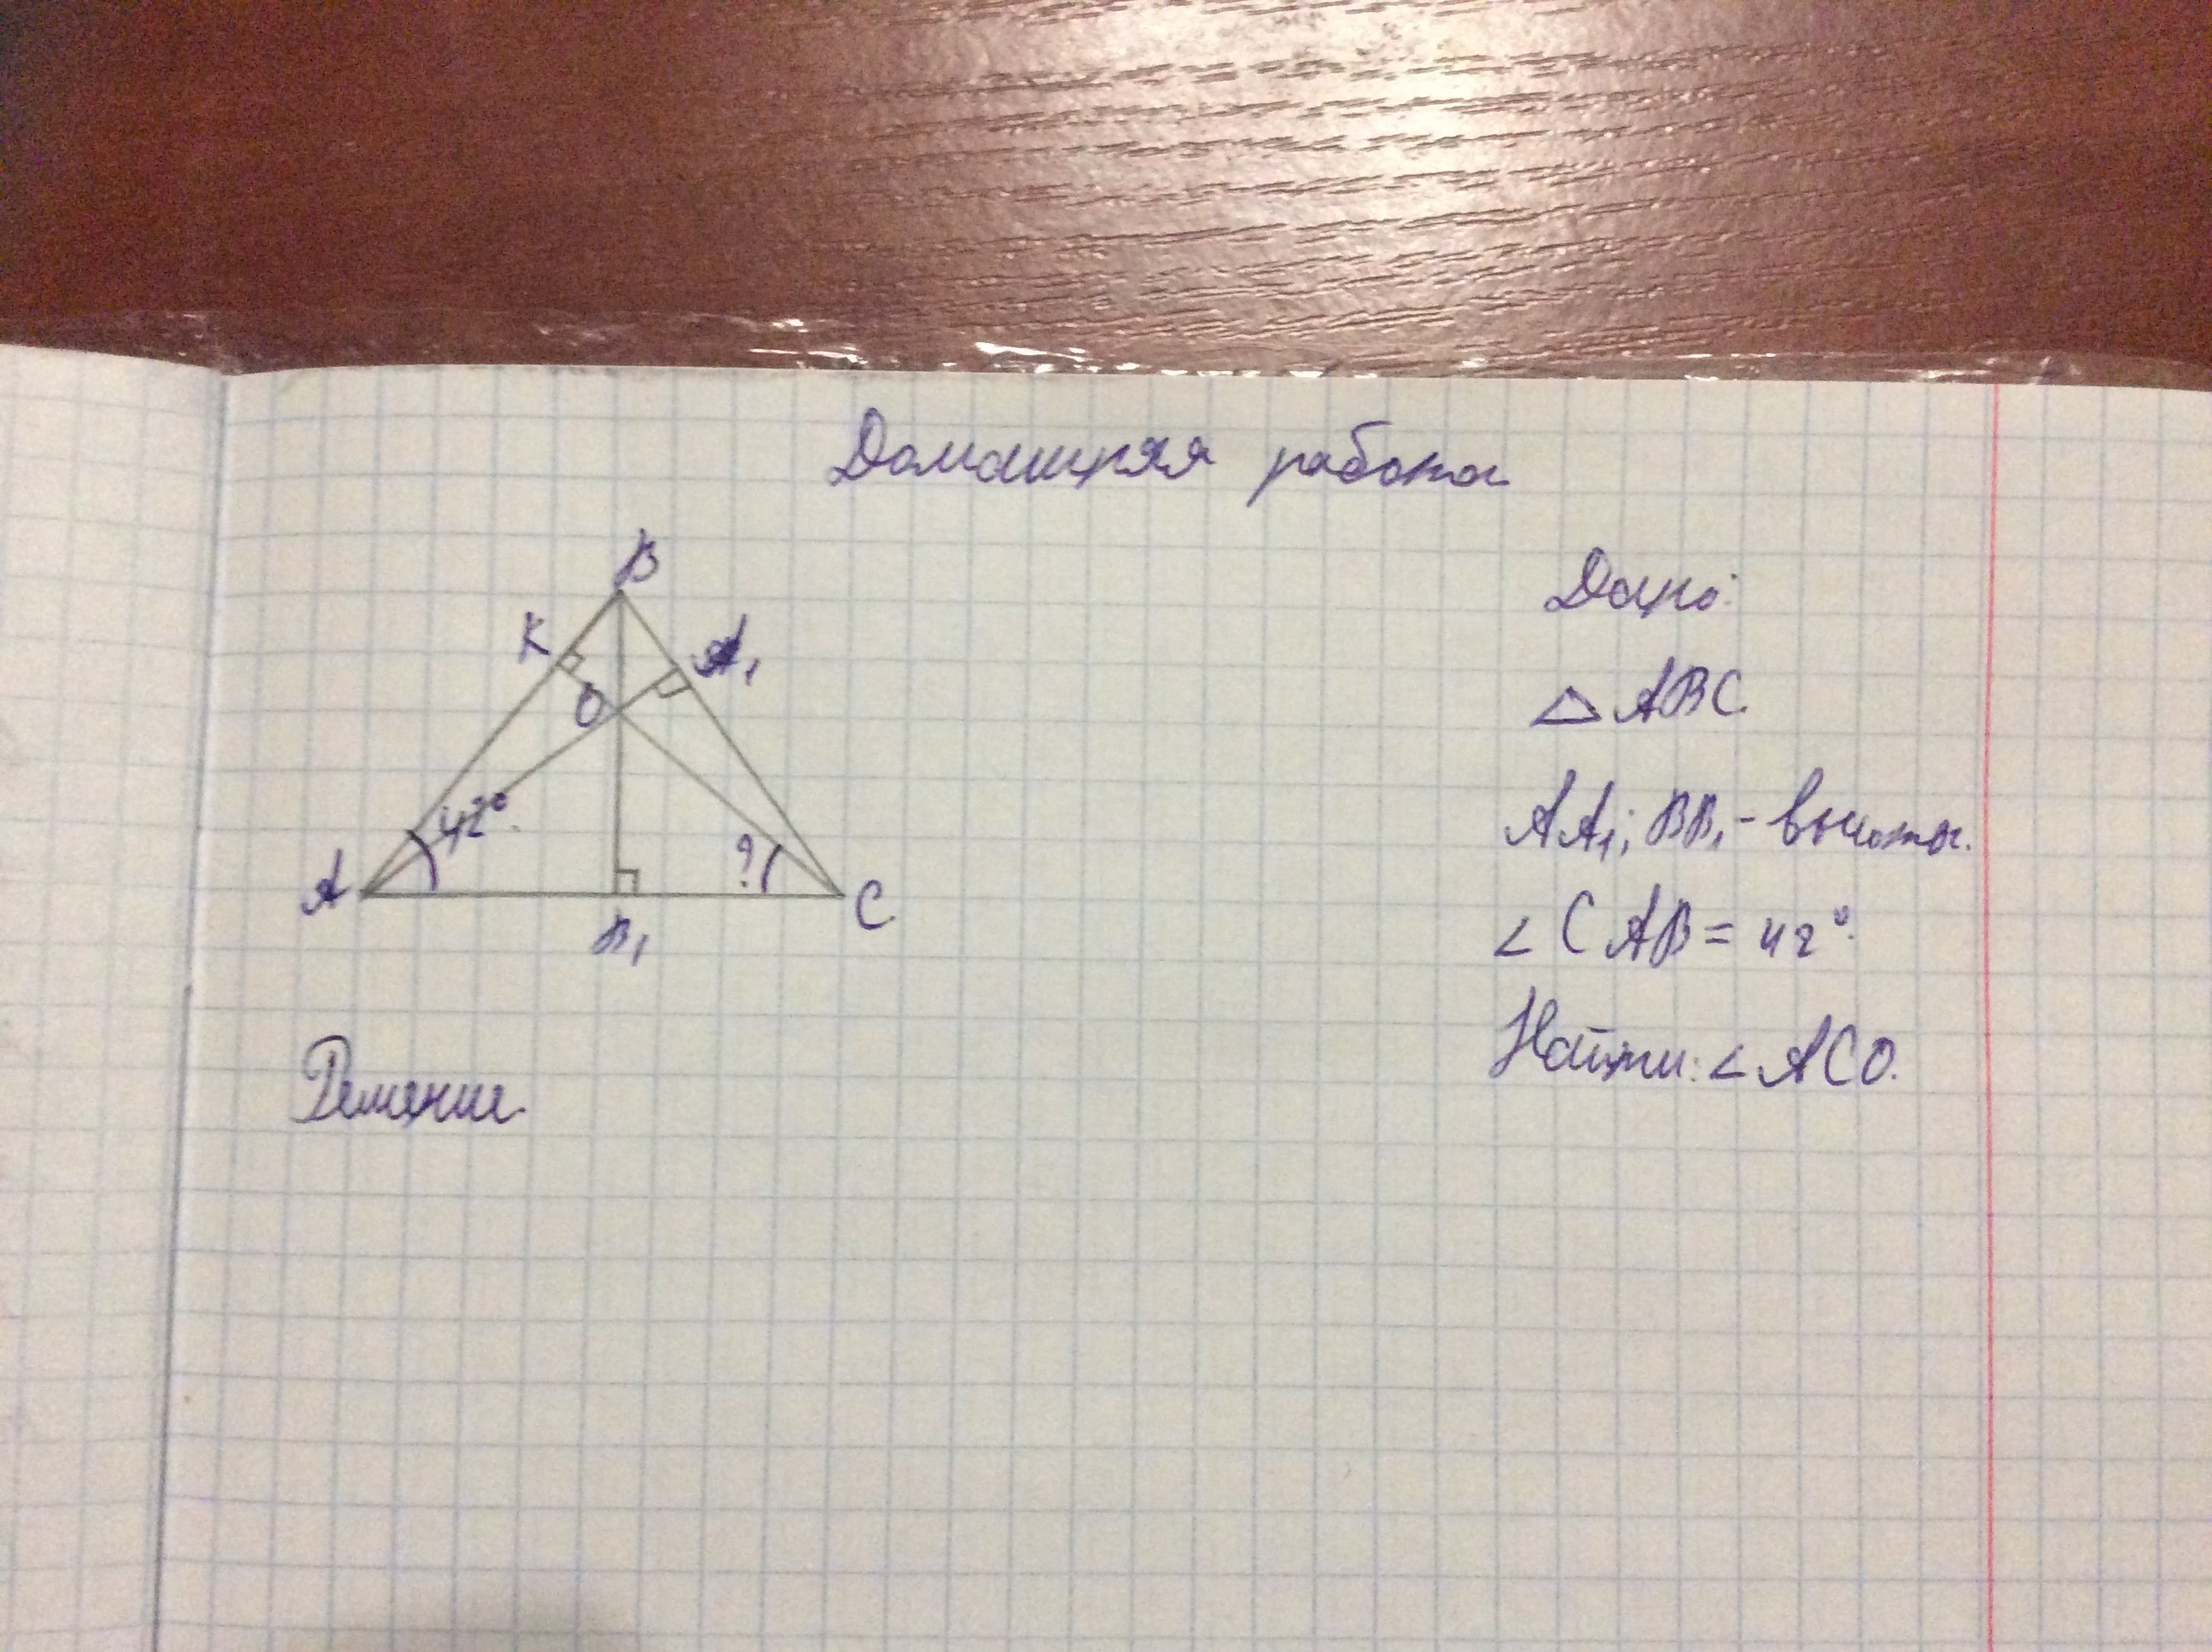 Домашняя работа
B
K
A₁
O
42°
?
A
C
B₁
Дано:
△ABC.
AA₁; BB₁ - высоты.
∠CAB = 42°.
Найти: ∠ACO.
Решение.